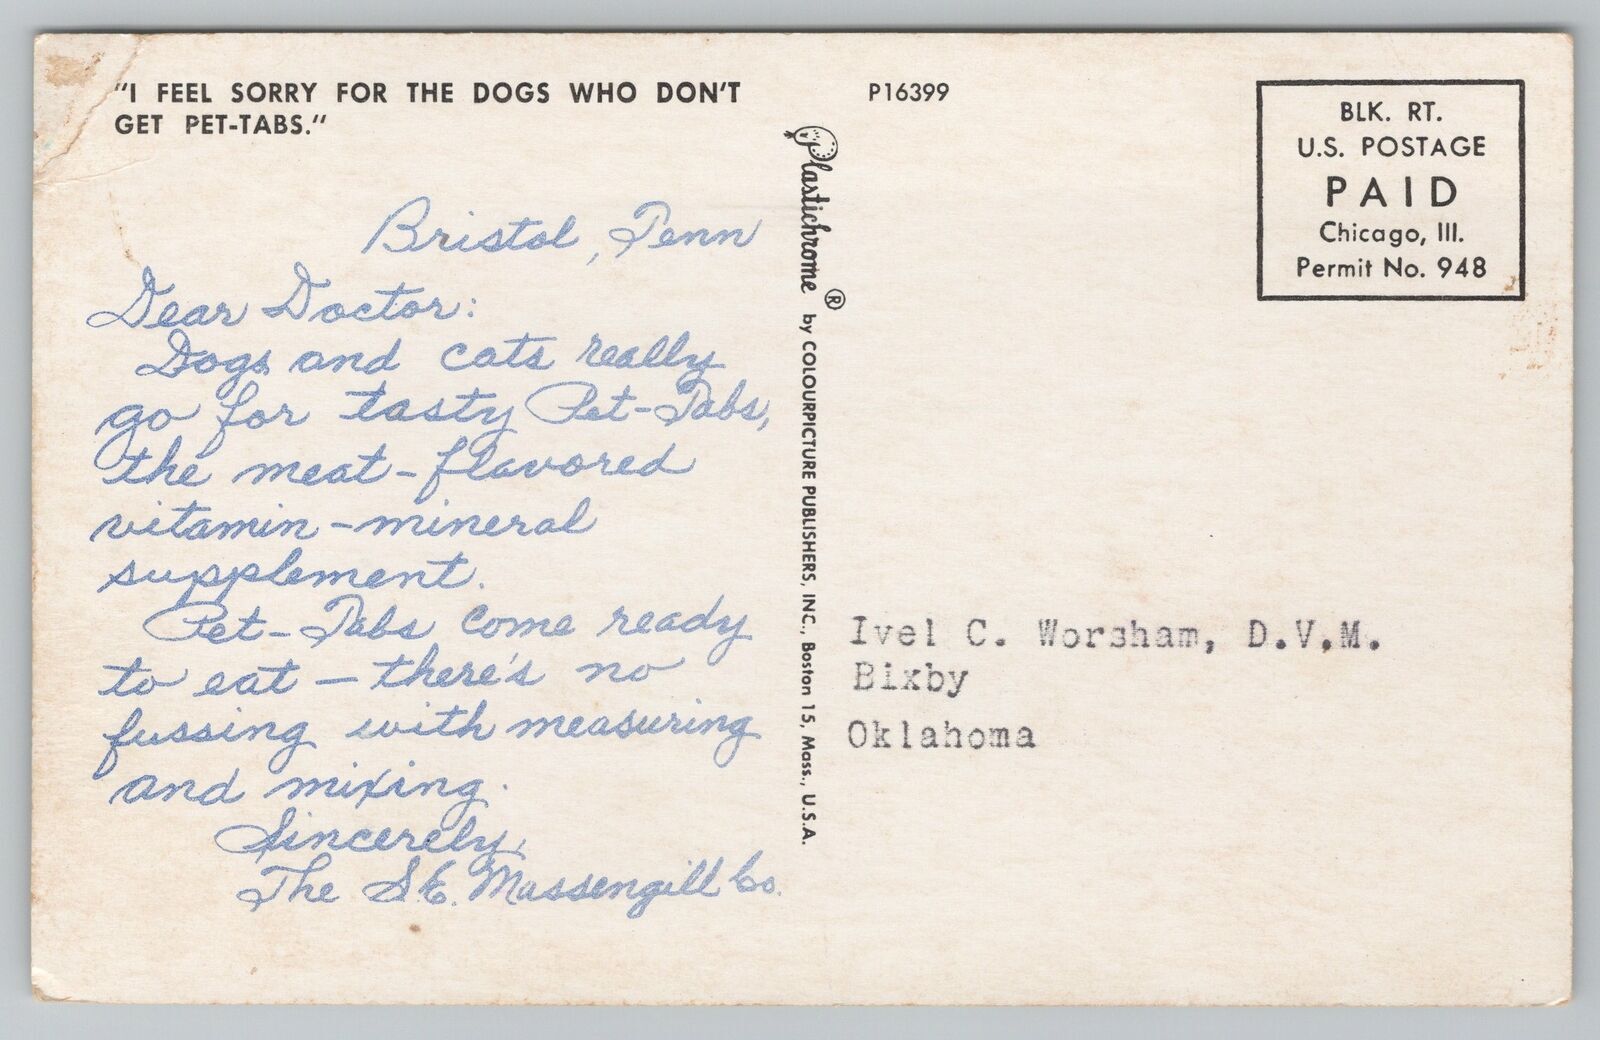 "I FEEL SORRY FOR THE DOGS WHO DON'T
GET PET-TABS."
Bristol, Tenn
Dear Doctor:
Dogs and cats really
go for tasty Pet-Tabs,
the meat-flavored
vitamin-mineral
supplement.
Pet-Tabs come ready
to eat — there's no
fussing with measuring
and mixing.
Sincerely,
The S.E. Massengill Co.
Plastichrome ® by COLOURPICTURE PUBLISHERS, INC., Boston 15, Mass., U.S.A.
P16399
BLK. RT.
U.S. POSTAGE
PAID
Chicago, Ill.
Permit No. 948
Ivel C. Worsham, D.V.M.
Bixby
Oklahoma